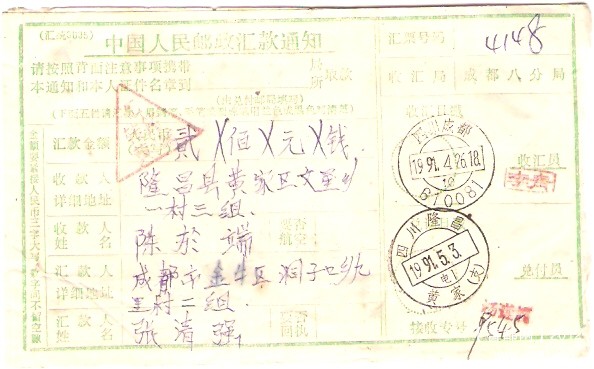 (汇统0035)
中国人民邮政汇款通知
汇票号码 4148
请按照背面注意事项携带
本通知和本人证件名章到
局
所
取款
收汇局 成都八分局
(出兑付邮局填写)
收汇日戳
汇款金额
贰 X 佰 X 元 X 钱
四川成都
1991.4.26.18
610081
收汇员
收款人
详细地址
隆昌县黄家区文
一村三组
收款人
姓名
陈於端
四川隆昌
1991.5.3.
黄家
兑付员
汇款人
详细地址
成都市金牛区洞子口
村二组
汇款人
姓名
张清强
接收专计
9545